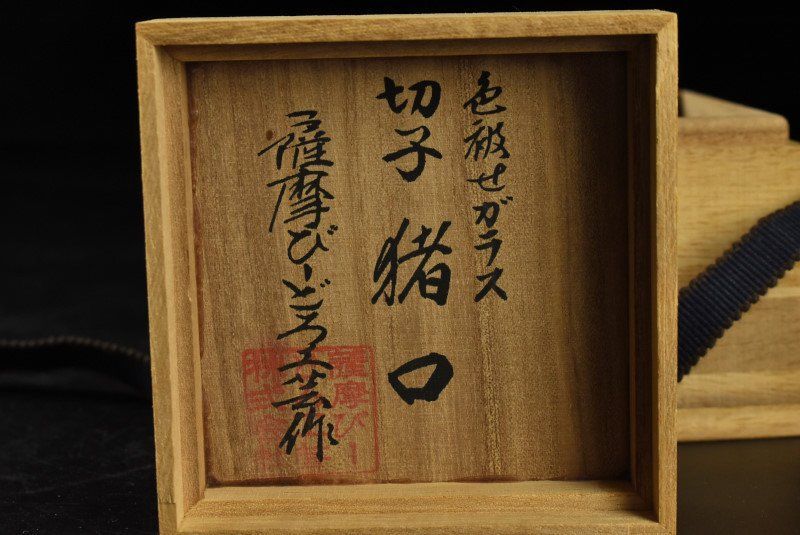 色被せガラス
切子 猪口
薩摩びーどろ工芸作
薩摩びー